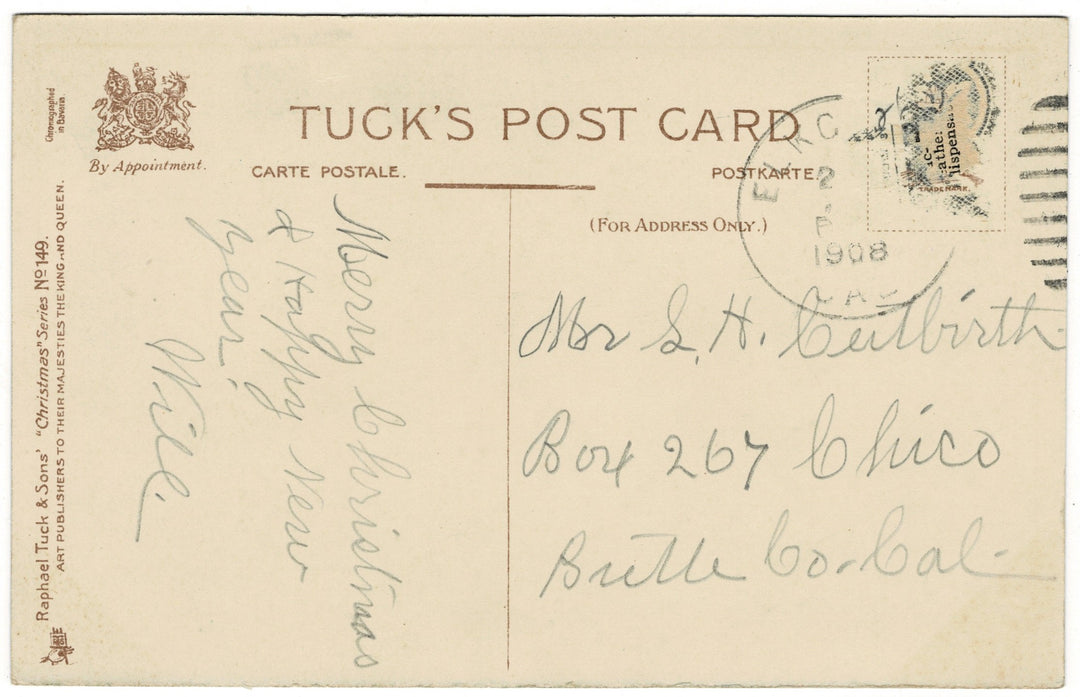 TUCK'S POST CARD
CARTE POSTALE.
POSTKARTE
(FOR ADDRESS ONLY.)
By Appointment.
Chromographed
in Bavaria.
Raphael Tuck & Sons' "Christmas" Series Nº 149.
ART PUBLISHERS TO THEIR MAJESTIES THE KING AND QUEEN.
Merry Christmas
& Happy New
Year.
Will.
2
P
1908
CAL
TRADE MARK.
Mr S. H. Cutbirth
Box 267 Chico
Butte Co-Cal-